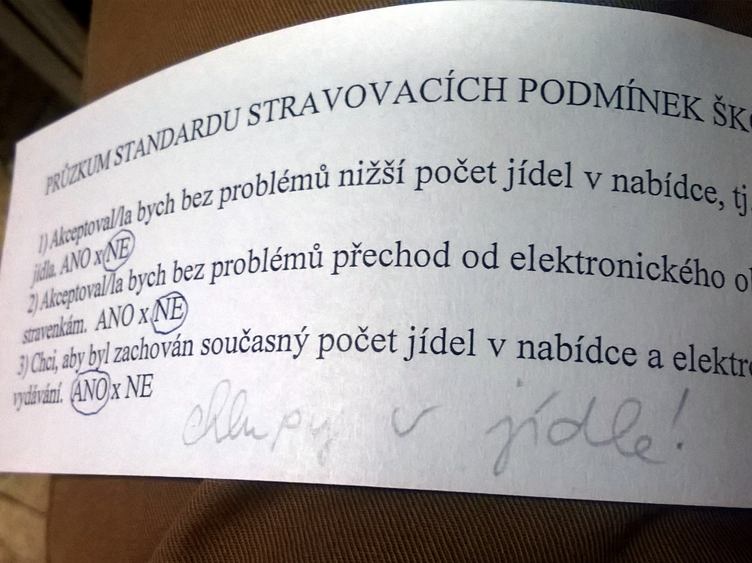 PRŮZKUM STANDARDU STRAVOVACÍCH PODMÍNEK
1) Akceptoval/la bych bez problémů nižší počet jídel v nabídce, tj.
jídla. ANO x NE
2) Akceptoval/la bych bez problémů přechod od elektronického
stravenkám. ANO x NE
3) Chci, aby byl zachován současný počet jídel v nabídce a
vydávání. ANO x NE
chlupy v jídle!